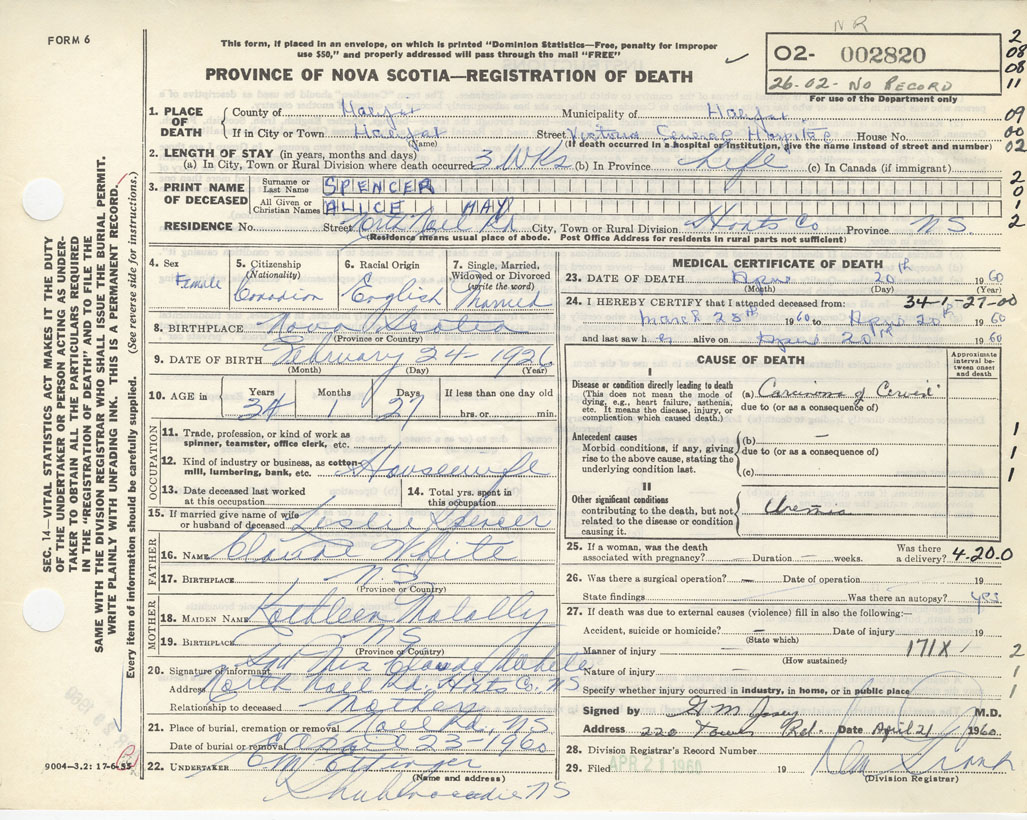 FORM 6
This form, if placed in an envelope, on which is printed "Dominion Statistics—Free, penalty for improper
use $50," and properly addressed will pass through the mail "FREE"
NR
02- 002820
26-02- NO RECORD
For use of the Department only
PROVINCE OF NOVA SCOTIA—REGISTRATION OF DEATH
2
08
08
11
09
00
02
2
0
1
2
1. PLACE OF DEATH
County of Halifax Municipality of Halifax
If in City or Town Halifax Street Victoria General Hospital House No.
(Name) (If death occurred in a hospital or institution, give the name instead of street and number)
2. LENGTH OF STAY (in years, months and days)
(a) In City, Town or Rural Division where death occurred 3 WKs (b) In Province Life (c) In Canada (if immigrant)
3. PRINT NAME OF DECEASED
Surname or Last Name SPENCER
All Given or Christian Names ALICE MAY
RESIDENCE No. Street North Noel Rd City, Town or Rural Division Hants Co Province NS
(Residence means usual place of abode. Post Office Address for residents in rural parts not sufficient)
4. Sex Female
5. Citizenship (Nationality) Canadian
6. Racial Origin English
7. Single, Married, Widowed or Divorced (write the word) Married
8. BIRTHPLACE Nova Scotia
(Province or Country)
9. DATE OF BIRTH February 24- 1926
(Month) (Day) (Year)
10. AGE in Years 34 Months 1 Days 27 If less than one day old hrs. or min.
OCCUPATION
11. Trade, profession, or kind of work as spinner, teamster, office clerk, etc.
12. Kind of industry or business, as cotton-mill, lumbering, bank, etc. Housewife
13. Date deceased last worked at this occupation
14. Total yrs. spent in this occupation
15. If married give name of wife or husband of deceased Leslie Spencer
FATHER
16. NAME Claude White
17. BIRTHPLACE N.S.
(Province or Country)
MOTHER
18. MAIDEN NAME Kathleen
19. BIRTHPLACE NS
(Province or Country)
20. Signature of informant Sgd Mrs Claude White
Address North Noel Rd. Hants Co. NS
Relationship to deceased Mother
21. Place of burial, cremation or removal Noel Rd, NS
Date of burial or removal April 23-1960
22. UNDERTAKER E M Ettinger
(Name and address)
Shubenacadie NS
MEDICAL CERTIFICATE OF DEATH
23. DATE OF DEATH April 20th 1960
(Month) (Day) (Year)
24. I HEREBY CERTIFY that I attended deceased from: 34-1-27-00
March 28th 1960 to April 20th 1960
and last saw h er alive on April 20th 1960
CAUSE OF DEATH
Approximate interval between onset and death
I
Disease or condition directly leading to death
(This does not mean the mode of dying, e.g., heart failure, asthenia, etc. It means the disease, injury, or complication which caused death.)
(a) Carcinoma of Cervix
due to (or as a consequence of)
Antecedent causes
Morbid conditions, if any, giving rise to the above cause, stating the underlying condition last.
(b) —
due to (or as a consequence of)
(c)
1
1
1
II
Other significant conditions
contributing to the death, but not related to the disease or condition causing it.
Uremia
25. If a woman, was the death associated with pregnancy? Duration — weeks. Was there a delivery? 4-20.0
26. Was there a surgical operation? — Date of operation 19
State findings Was there an autopsy? yes
27. If death was due to external causes (violence) fill in also the following:—
Accident, suicide or homicide? — Date of injury 19
(State which)
Manner of injury 171X
(How sustained)
2
Nature of injury
1
Specify whether injury occurred in industry, in home, or in public place
Signed by M.D.
Address Rd. Date April 21 1960
28. Division Registrar's Record Number
29. Filed APR 21 1960 19
(Division Registrar)
SEC. 14—VITAL STATISTICS ACT MAKES IT THE DUTY
OF THE UNDERTAKER OR PERSON ACTING AS UNDER-
TAKER TO OBTAIN ALL THE PARTICULARS REQUIRED
IN THE "REGISTRATION OF DEATH" AND TO FILE THE
SAME WITH THE DIVISION REGISTRAR WHO SHALL ISSUE THE BURIAL PERMIT.
WRITE PLAINLY WITH UNFADING INK. THIS IS A PERMANENT RECORD.
Every item of information should be carefully supplied. (See reverse side for instructions.)
9004—3.2: 17-6-55